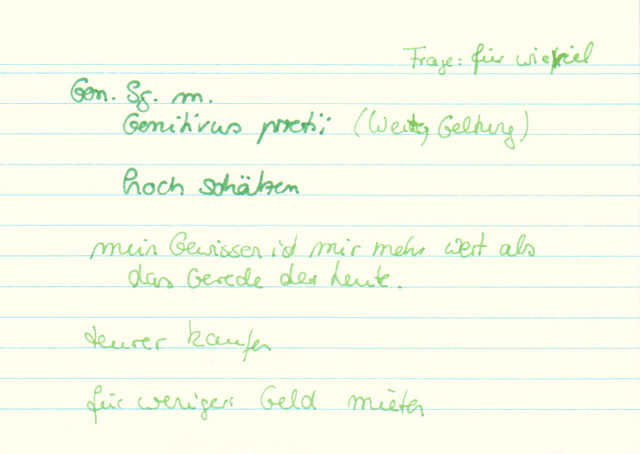 Frage: für wieviel
Gen. Sg. m.
Genitivus pretii (Wert, Geltung)
hoch schätzen
mein Gewissen ist mir mehr wert als
das Gerede der Leute.
teurer kaufen
für weniger Geld mieten